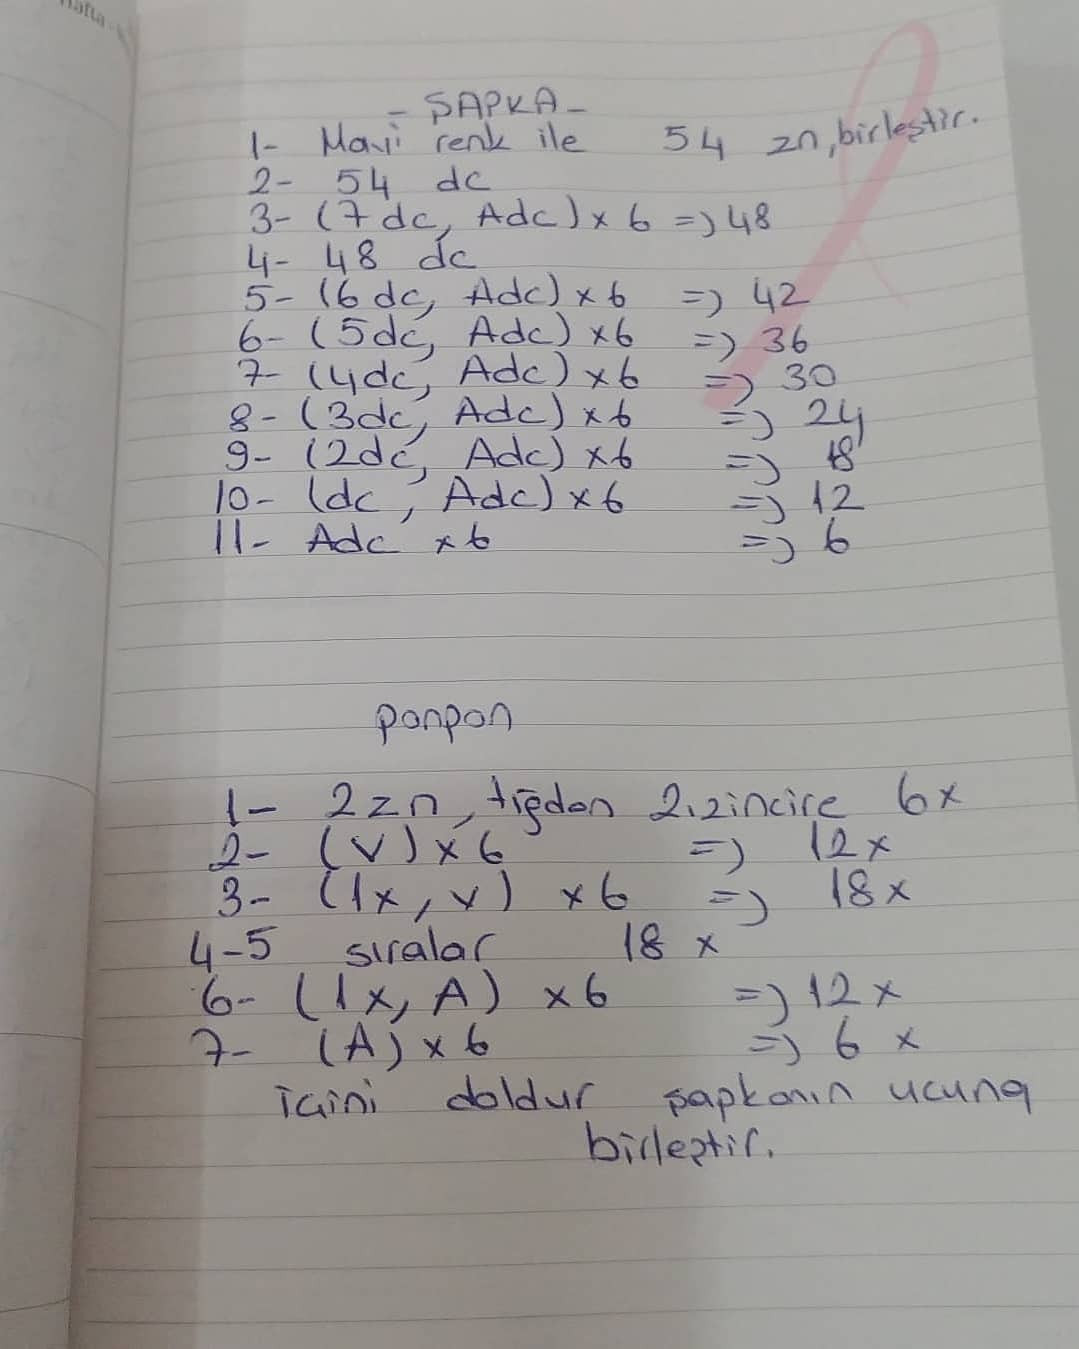 Hafta
- ŞAPKA -
1- Mavi renk ile 54 zn, birleştir.
2- 54 dc
3- (7 dc, Adc) x 6 => 48
4- 48 dc
5- (6 dc, Adc) x 6 => 42
6- (5dc, Adc) x6 => 36
7- (4dc, Adc) x6 => 30
8- (3dc, Adc) x6 => 24
9- (2dc, Adc) x6 => 18
10- (dc, Adc) x 6 => 12
11- Adc x 6 => 6
ponpon
1- 2 zn, tığdan 2.zincire 6x
2- (V) x 6 => 12x
3- (1x, v) x 6 => 18x
4-5 sıralar 18 x
6- (1x, A) x 6 => 12x
7- (A) x 6 => 6 x
İçini doldur şapkanın ucuna
birleştir.